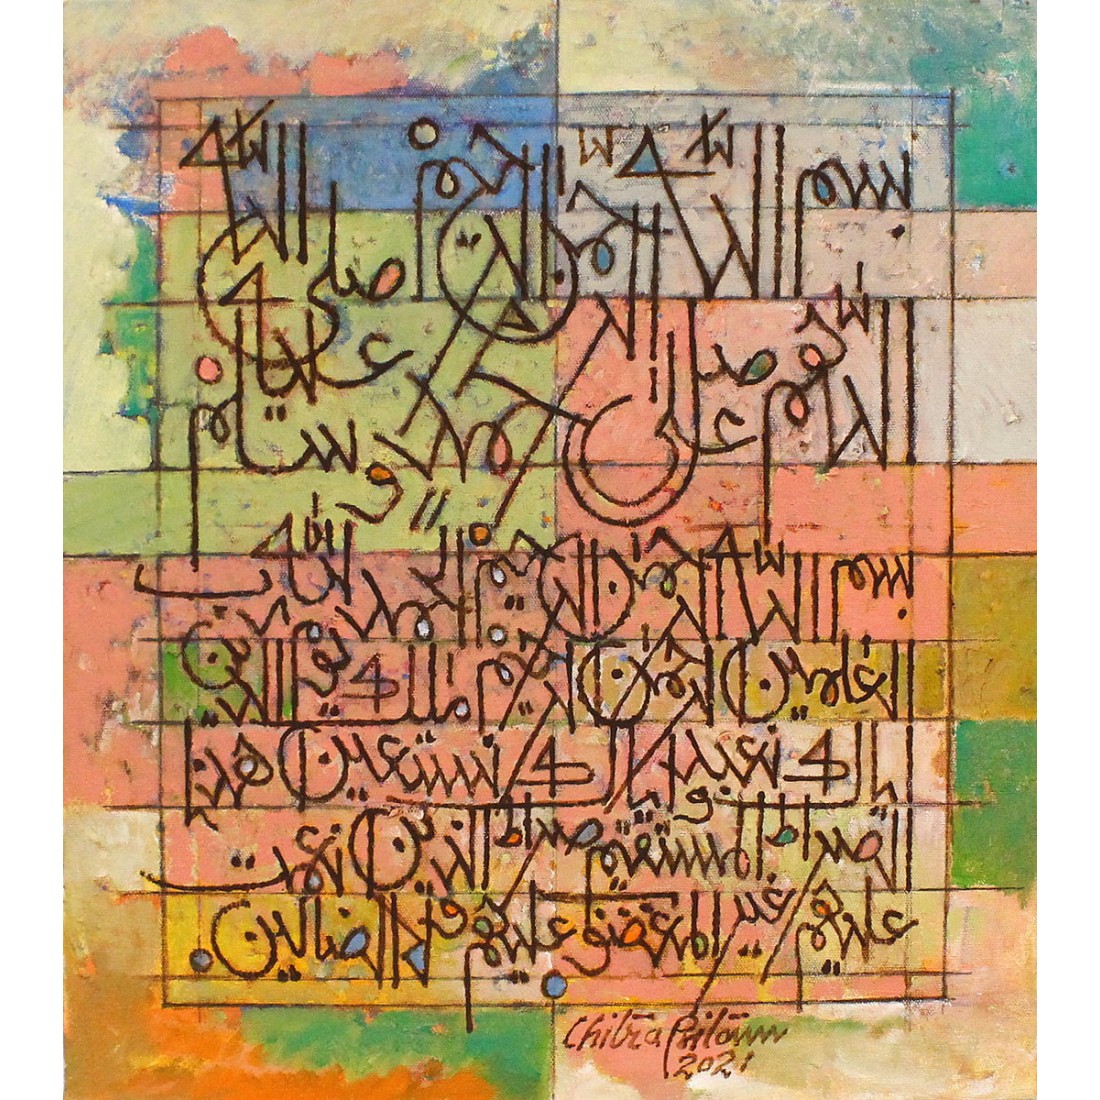 بسم الله الرحمن الرحيم صلى الله
اللهم صل على محمد عليه وسلم
بسم الله الرحمن الرحيم الحمد لله رب
العلمين الرحمن الرحيم ملك يوم الدين
اياك نعبد واياك نستعين اهدنا
الصراط المستقيم صراط الذين انعمت
عليهم غير المغضوب عليهم ولا الضالين
Chitra Pritam
2021